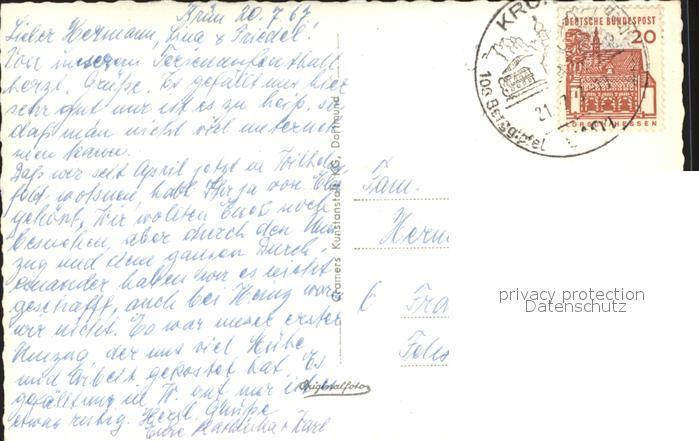 Krün 20.7.67
Lieber Hermann, Lina & Friedel!
Von unserem Ferienaufenthalt
herzl. Grüße. Es gefällt uns hier
sehr gut nur ist es zu heiß, so
daß man nicht viel unterneh
men kann.
Daß wir seit April jetzt in
wohnen, habt Ihr ja von
gehört. Wir wollten Euch noch
besuchen, aber durch den Um
zug und dem ganzen Durch
einander haben wir es nicht
geschafft, auch bei Heinz waren
wir nicht. Es war unser erster
Umzug, der uns viel Mühe
und Arbeit gekostet hat. Es
gefällt uns in W. gut nur
etwas ruhig. Herzl. Grüße
Eure + Karl
Cramers Kunstanstalt KG, Dortmund
Originalfoto
KRÜN
100 Berggipfel
21.
DEUTSCHE BUNDESPOST
20
LORSCH HESSEN
Fam.
Herm
6 Fra
Fels
privacy protection
Datenschutz